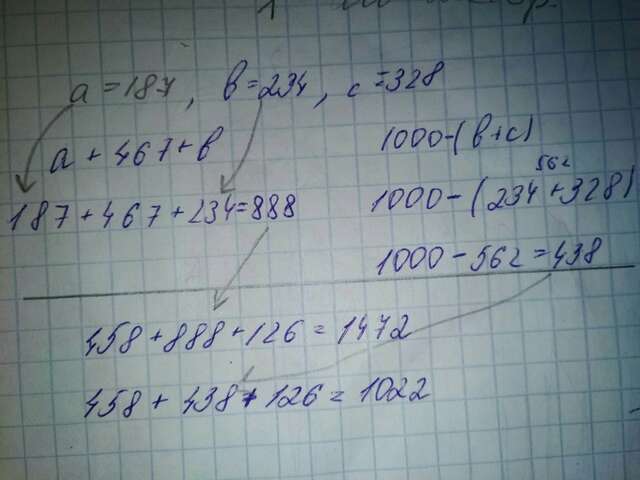 a = 187, в = 234, c = 328
a + 467 + в
1000 - (в + c)
187 + 467 + 234 = 888
562
1000 - (234 + 328)
1000 - 562 = 438
458 + 888 + 126 = 1472
458 + 438 + 126 = 1022